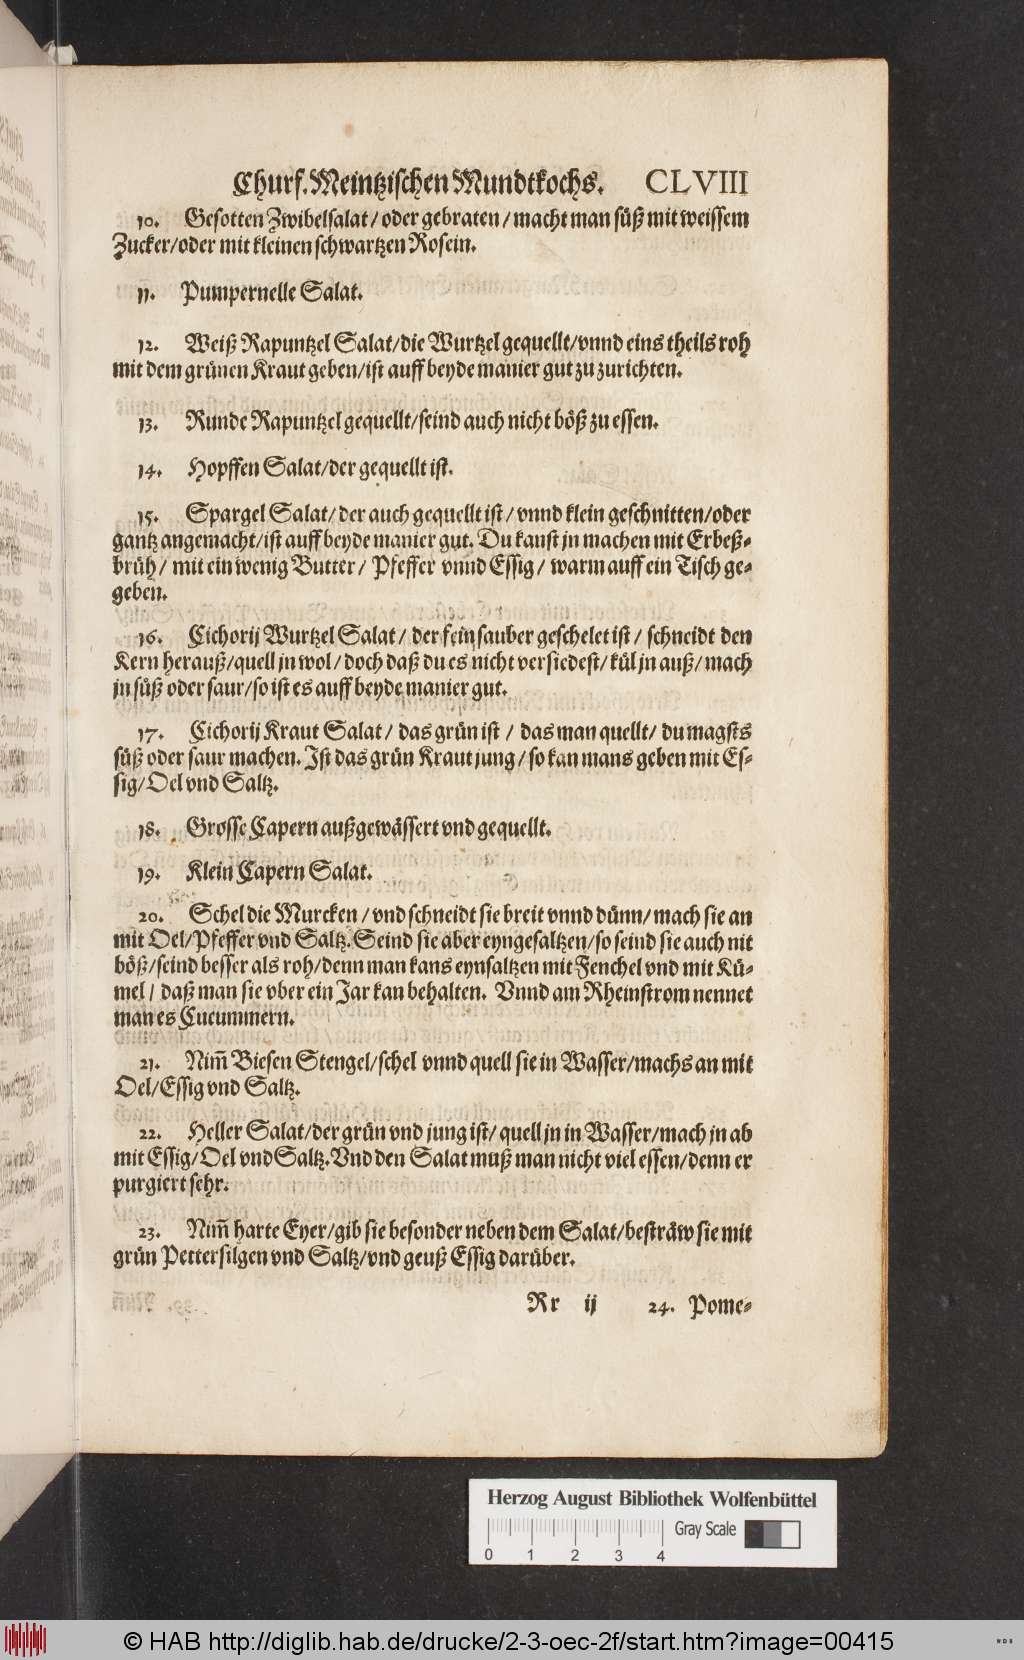 Churf. Meintzischen Mundtkochs. CLVIII
10. Gesotten Zwibelsalat / oder gebraten / macht man süß mit weissem
Zucker / oder mit kleinen schwartzen Rosein.
11. Pumpernelle Salat.
12. Weiß Rapuntzel Salat / die Wurtzel gequellt / vnnd eins theils roh
mit dem grünen Kraut geben / ist auff beyde manier gut zu zurichten.
13. Runde Rapuntzel gequellt / seind auch nicht böß zu essen.
14. Hopffen Salat / der gequellt ist.
15. Spargel Salat / der auch gequellt ist / vnnd klein geschnitten / oder
gantz angemacht / ist auff beyde manier gut. Du kanst jn machen mit Erbeß-
brüh / mit ein wenig Butter / Pfeffer vnnd Essig / warm auff ein Tisch ge-
geben.
16. Cichorij Wurtzel Salat / der fein sauber geschelet ist / schneidt den
Kern herauß / quell jn wol / doch daß du es nicht versiedest / kül jn auß / mach
jn süß oder saur / so ist es auff beyde manier gut.
17. Cichorij Kraut Salat / das grün ist / das man quellt / du magsts
süß oder saur machen. Ist das grün Kraut jung / so kan mans geben mit Es-
sig / Oel vnd Saltz.
18. Grosse Capern außgewässert vnd gequellt.
19. Klein Capern Salat.
20. Schel die Murcken / vnd schneidt sie breit vnnd dünn / mach sie an
mit Oel / Pfeffer vnd Saltz. Seind sie aber eyngesaltzen / so seind sie auch nit
böß / seind besser als roh / denn man kans eynsaltzen mit Fenchel vnd mit Kü-
mel / daß man sie vber ein Jar kan behalten. Vnnd am Rheinstrom nennet
man es Cucummern.
21. Nim̃ Biesen Stengel / schel vnnd quell sie in Wasser / machs an mit
Oel / Essig vnd Saltz.
22. Heller Salat / der grün vnd jung ist / quell jn in Wasser / mach jn ab
mit Essig / Oel vnd Saltz. Vnd den Salat muß man nicht viel essen / denn er
purgiert sehr.
23. Nim̃ harte Eyer / gib sie besonder neben dem Salat / besträw sie mit
grün Pettersilgen vnd Saltz / vnd geuß Essig darüber.
Rr ij 24. Pome-
Herzog August Bibliothek Wolfenbüttel
Gray Scale
0 1 2 3 4
© HAB http://diglib.hab.de/drucke/2-3-oec-2f/start.htm?image=00415